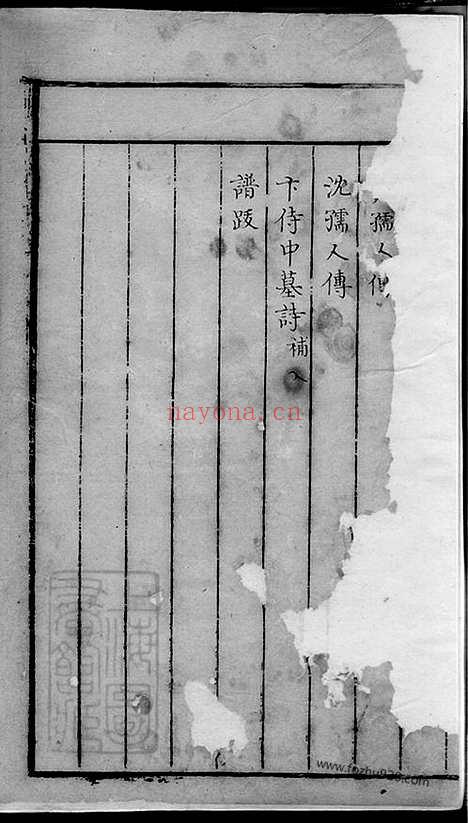 孺人傳
沈孺人傳
卞侍中墓詩補入
譜跋
nayona.cn
www.fozhu920.com